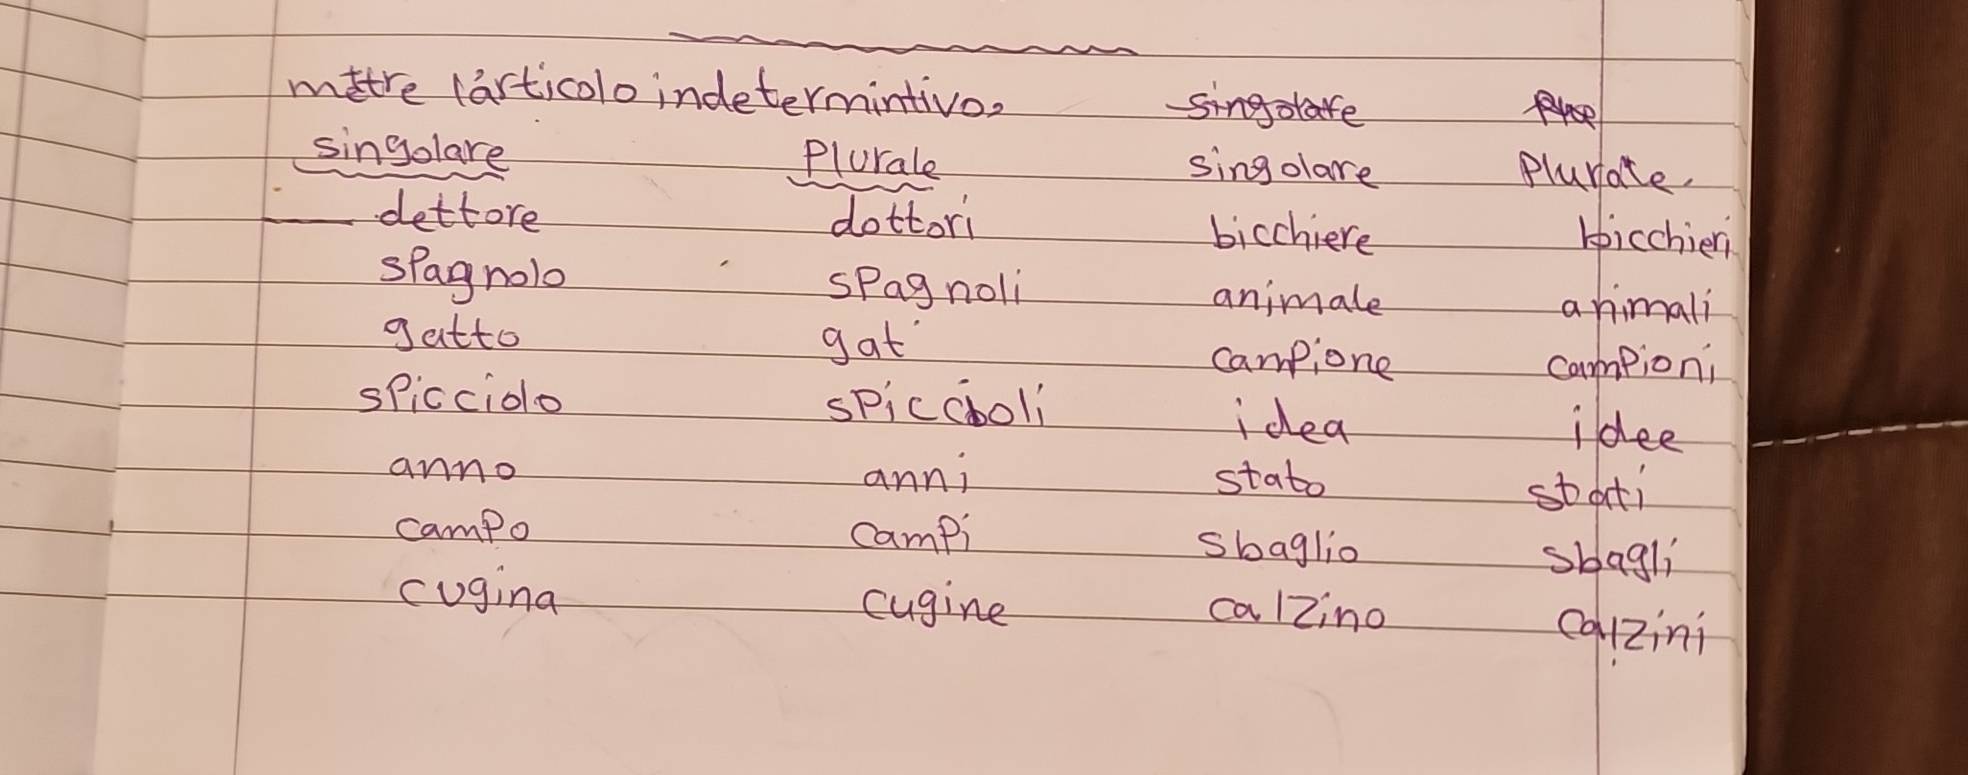 mettre l'articolo indetermintivo. singolare
singolare Plurale singolare Plurale.
dettore dottori bicchiere bicchieri
spagnolo spagnoli animale animali
gatto gat campione campioni
spicciolo spiccioli idea idee
anno anni stato stati
campo campi sbaglio sbagli
cugina cugine calzino calzini